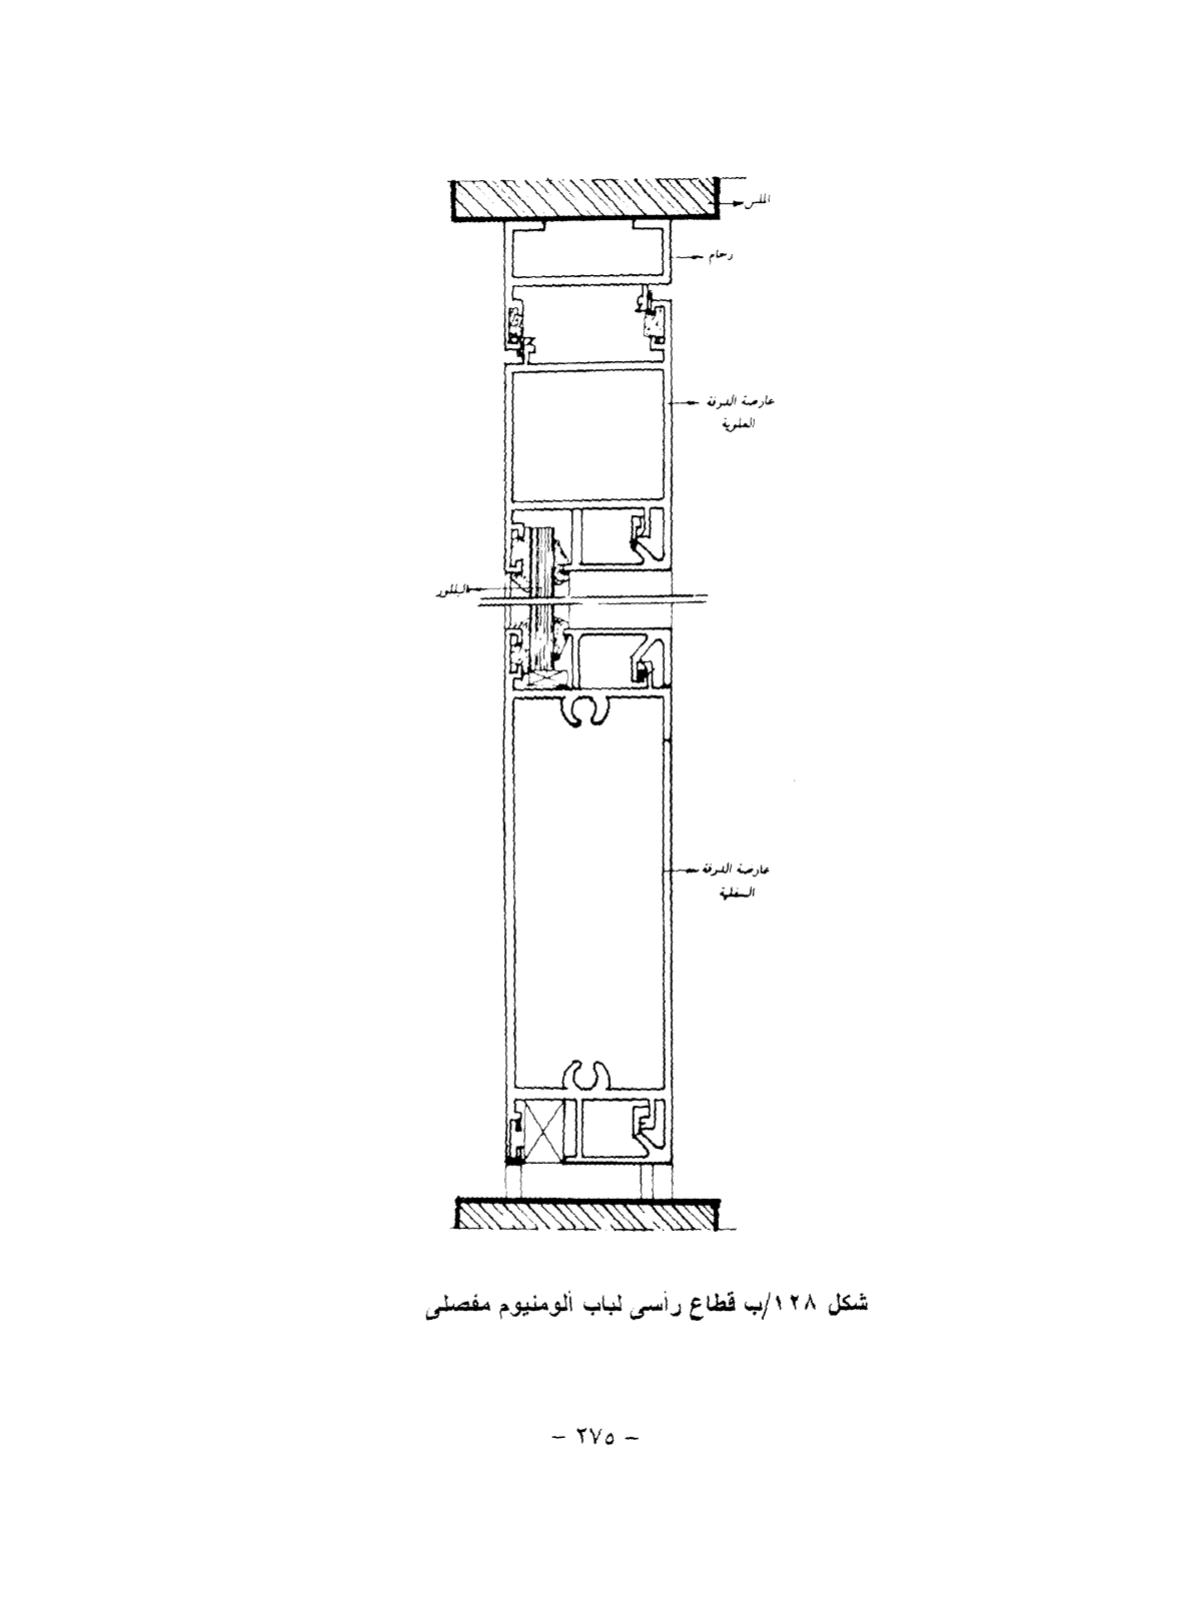 رخام
عارضة الدرفة
العلوية
البللور
عارضة الدرفة
السفلية
شكل ١٢٨/ب قطاع رأسى لباب ألومنيوم مفصلى
– ٢٧٥ –